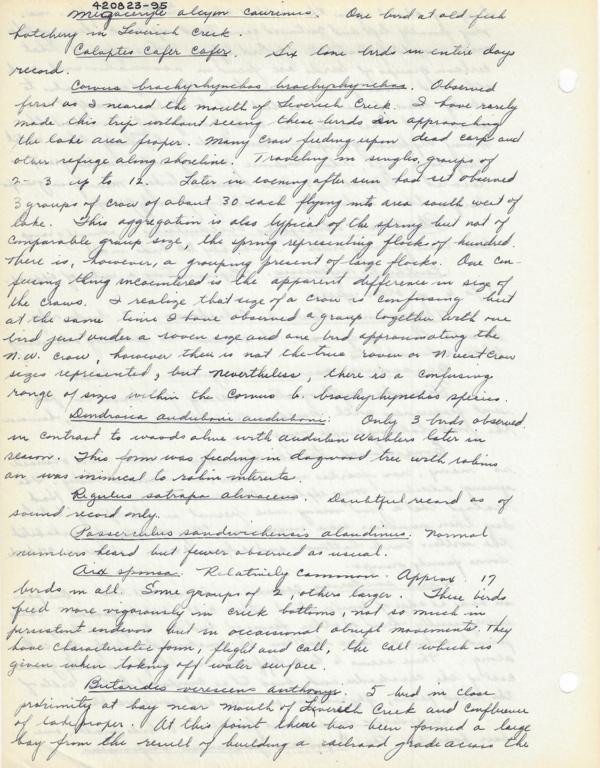 420823-95
Megaceryle alcyon caurinus. One bird at old fish
hatchery in Leverich Creek.
Colaptes cafer cafer. Six lone birds in entire days
record.
Corvus brachyrhynchos brachyrhynchos. Observed
first as I neared the mouth of Leverich Creek. I have rarely
made this trip without seeing these birds in approaching
the lake area proper. Many crow feeding upon dead carp and
other refuge along shoreline. Traveling in singles, groups of
2-3 up to 12. Later in evening after sun had set observed
3 groups of crow of about 30 each flying into area south west of
lake. This aggregation is also typical of the spring but not of
comparable group size, the spring representing flocks of hundred.
There is, however, a grouping present of large flocks. One con-
fusing thing incountered is the apparent difference in size of
the crows. I realize that size of a crow is confusing but
at the same time I have observed a group together with one
bird just under a raven size and one bird approximating the
N.W. Crow, however there is not the true raven or N.west Crow
sizes represented, but nevertheless, there is a confusing
range of sizes within the Corvus b. brachyrhynchos species.
Dendroica auduboni auduboni. Only 3 birds observed
in contrast to woods alive with Audubon Warblers later in
season. This form was feeding in dogwood tree with robins
an was inimical to robin interests.
Regulus satrapa olivaceus. Doubtful record as of
sound record only.
Passerculus sandwichensis alaudinus. Normal
numbers heard but fewer observed as usual.
Aix sponsa. Relatively common. Approx. 17
birds in all. Some groups of 2, others larger. These birds
feed more vigorously in creek bottoms, not so much in
persistent endevors but in occassional abrupt movements. They
have characteristic form, flight and call, the call which is
given when taking off water surface.
Butorides virescens anthonyi. 5 bird in close
proximity at bay near mouth of Leverich Creek and confluence
of lake proper. At this point there has been formed a large
bay from the result of building a railroad grade across the